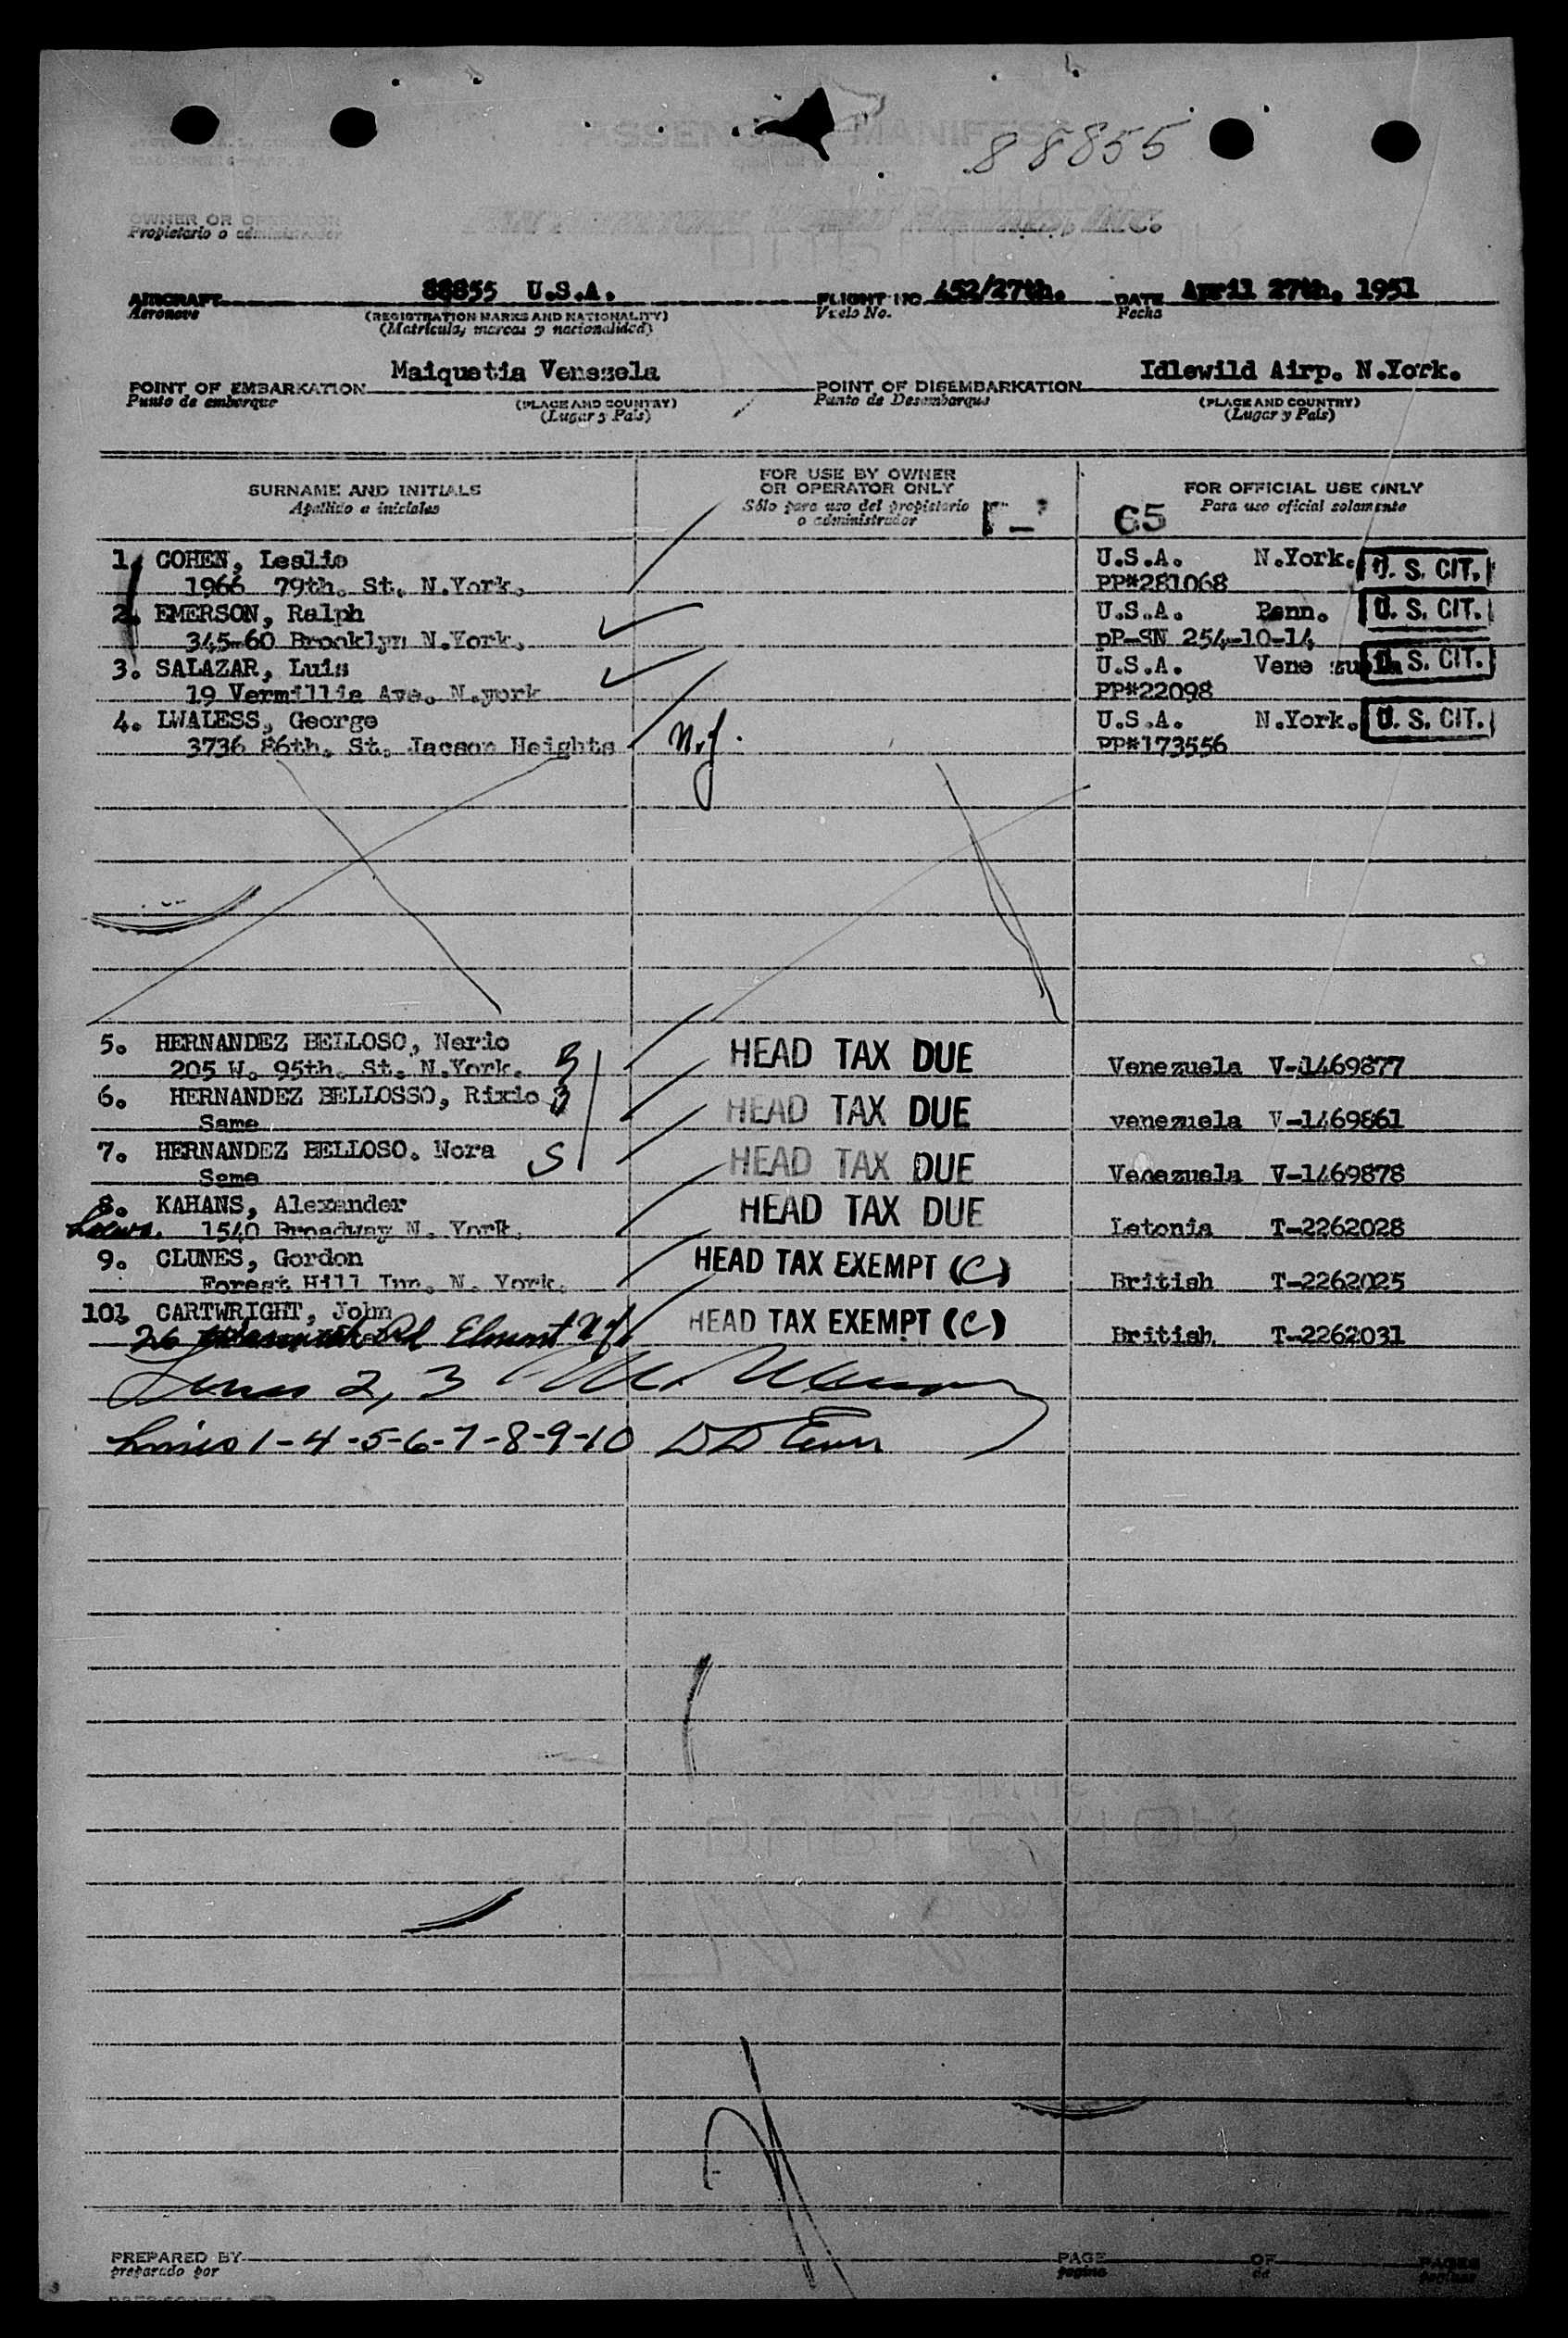 PASSENGER MANIFEST
88855
OWNER OR OPERATOR
Propietario o administrador
INC.
AIRCRAFT 88855 U.S.A. FLIGHT NO. 452/27th. DATE April 27th, 1951
Aeronave (REGISTRATION MARKS AND NATIONALITY) Vuelo No. Fecha
(Matricula, marcas y nacionalidad)
POINT OF EMBARKATION Maiquetia Venezuela POINT OF DISEMBARKATION Idlewild Airp. N.York.
Punto de embarque (PLACE AND COUNTRY) Punto de Desembarque (PLACE AND COUNTRY)
(Lugar y País) (Lugar y País)
SURNAME AND INITIALS FOR USE BY OWNER OR OPERATOR ONLY FOR OFFICIAL USE ONLY
Apellido e iniciales Sólo para uso del propietario o administrador 65 Para uso oficial solamente
1. COHEN, Leslie U.S.A. N.York. U. S. CIT.
1966 79th. St. N.York. PP#281068
2. EMERSON, Ralph U.S.A. Penn. U. S. CIT.
345-60 Brooklyn N.York. pP-SN 254-10-14
3. SALAZAR, Luis U.S.A. Venezuela U. S. CIT.
19 Vermillia Ave. N.york PP#22098
4. LWALESS, George U.S.A. N.York. U. S. CIT.
3736 86th. St. Jacson Heights N.Y. PP#173556
5. HERNANDEZ BELLOSO, Nerio HEAD TAX DUE
205 W. 95th. St. N.York. B Venezuela V-1469877
6. HERNANDEZ BELLOSSO, Rixio B HEAD TAX DUE
Same venezuela V-1469861
7. HERNANDEZ BELLOSO. Nora S HEAD TAX DUE
Same Venezuela V-1469878
8. KAHANS, Alexander HEAD TAX DUE
Loews. 1540 Broadway N. York. Letonia T-2262028
9. CLUNES, Gordon HEAD TAX EXEMPT (C)
Forest Hill Inn, N. York. British T-2262025
10. CARTWRIGHT, John HEAD TAX EXEMPT (C)
26 Rd Elmont N.Y. British T-2262031
Lines 2, 3
Lines 1-4-5-6-7-8-9-10
PREPARED BY PAGE OF PAGES
preparado por pagina de paginas